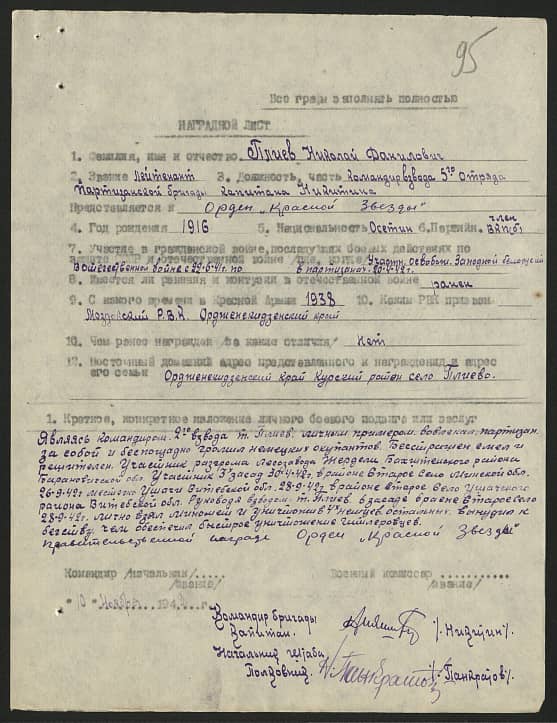 95
Все графы заполнять полностью
НАГРАДНОЙ ЛИСТ
1. Фамилия, имя и отчество Плиев Николай Данилович
2. Звание Лейтенант 3. Должность, часть Командир взвода 5го Отряда
Партизанской бригады капитана Никитина
Представляется к Орден „Красной Звезды“
4. Год рождения 1916 5. Национальность Осетин 6. Партийн. член ВКП(б)
7. Участие в гражданской войне, последующих боевых действиях по
защите СССР и отечественной войне Участн. Освобож. Западной Белорусии
В отечественной войне с 22-6-41г. по в партизанах 20-4-42г.
8. Имеются ли ранения и контузии в отечественной войне ранен
9. С какого времени в Красной Армии 1938 10. Каким РВК призван
Моздокский Р.В.К. Орджоникидзенский край
10. Чем ранее награжден /за какие отличия/ нет
12. Постоянный домашний адрес представленного к награждению и адрес
его семьи Орджоникидзенский край Курский район село Плиево.
1. Краткое, конкретное изложение личного боевого подвига или заслуг
Являясь командиром 2го взвода т. Плиев. личным примером. вовлекал партизан.
за собой и беспощадно громил немецких окупантов. Бесстрашен смел и
решителен. Участник разгрома Лесозавода Жердели района
Барановичской обл. Участник 3 засад 30-4-42г. в районе второе село Минской обл.
26-9-42г местечко Ушачи Витебской обл. 28-9-42г в районе второе село Ушачского
района Витебской обл. Руководя взводом т. Плиев в засаде в районе второе село
28-9-42г. лично взял миномет и уничтожив 4х немцев остальных вынудил к
бегству, чем обеспечил быстрое уничтожение гитлеровцев.
Правительственной награде Орден „Красной Звезды“
Командир /начальник/...... Военный комиссар ...........
/звание/ /звание/
"10" Ноября 194 г.
Командир бригады
Капитан. /. Никитин/.
Начальник штаба
Полковник. /. Панкратов/.